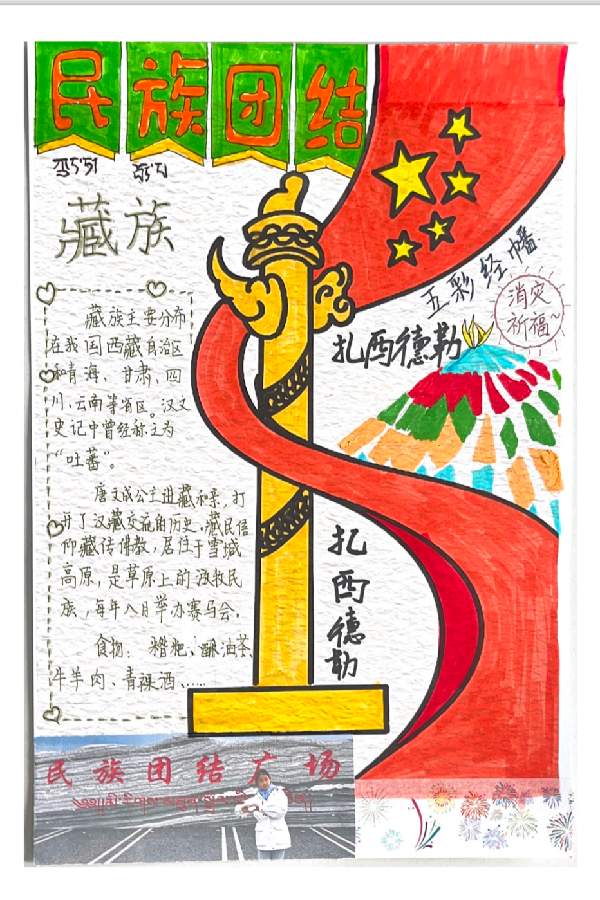 民族团结
藏族
藏族主要分布
在我国西藏自治区
和青海、甘肃、四
川、云南等省区。汉文
史记中曾经称之为
“吐蕃”。
唐文成公主进藏和亲，打
开了汉藏交流的历史，藏民信
仰藏传佛教，居住于雪域
高原，是草原上的游牧民
族，每年八月举办赛马会。
食物：糌粑、酥油茶、
牛羊肉、青稞酒、……
五彩经幡
消灾
祈福~
扎西德勒
扎西德勒
民族团结广场